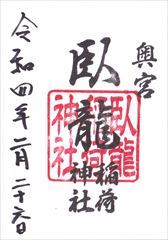 奥宮
臥龍稲荷
神社
令和四年二月二十六日
臥龍
稲荷
神社